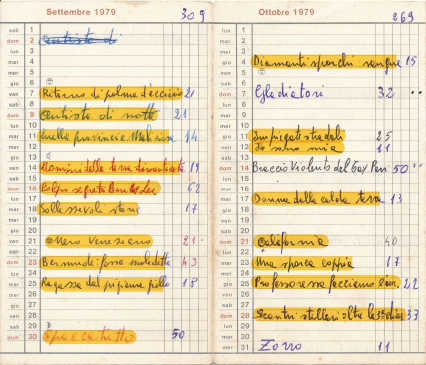 Settembre 1979 309
sab 1
dom 2 Autista di
lun 3
mar 4
mer 5
gio 6
ven 7 Ritorno di palma d'acciaio 21
sab 8
dom 9 Autista di notte 21
lun 10
mar 11 Quella provincia 14
mer 12
gio 13
ven 14 Uomini della terra dimenticata 19
sab 15
dom 16 Colpo segreto Bruce Lee 62
lun 17
mar 18 Sollazzevoli storie 17
mer 19
gio 20
ven 21 Nero Veneziano 21
sab 22
dom 23 Bermude fossa maledetta 43
lun 24
mar 25 Ragazza dal pigiama giallo 18
mer 26
gio 27
ven 28
sab 29
dom 30 50
Ottobre 1979 269
lun 1
mar 2
mer 3
gio 4 Diamanti sporchi sangue 15
ven 5
sab 6
dom 7 Gladiatori 32
lun 8
mar 9
mer 10
gio 11 Impiegati stradali 25
ven 12 Io sono mia 11
sab 13
dom 14 Braccio Violento del Tay Pan 50
lun 15
mar 16
mer 17 Donna della calda terra 13
gio 18
ven 19
sab 20
dom 21 California 40
lun 22
mar 23 Una sporca coppia 17
mer 24
gio 25 Professoressa facciamo 22
ven 26
sab 27
dom 28 Scontri stellari oltre la 33
lun 29
mar 30
mer 31 Zorro 11